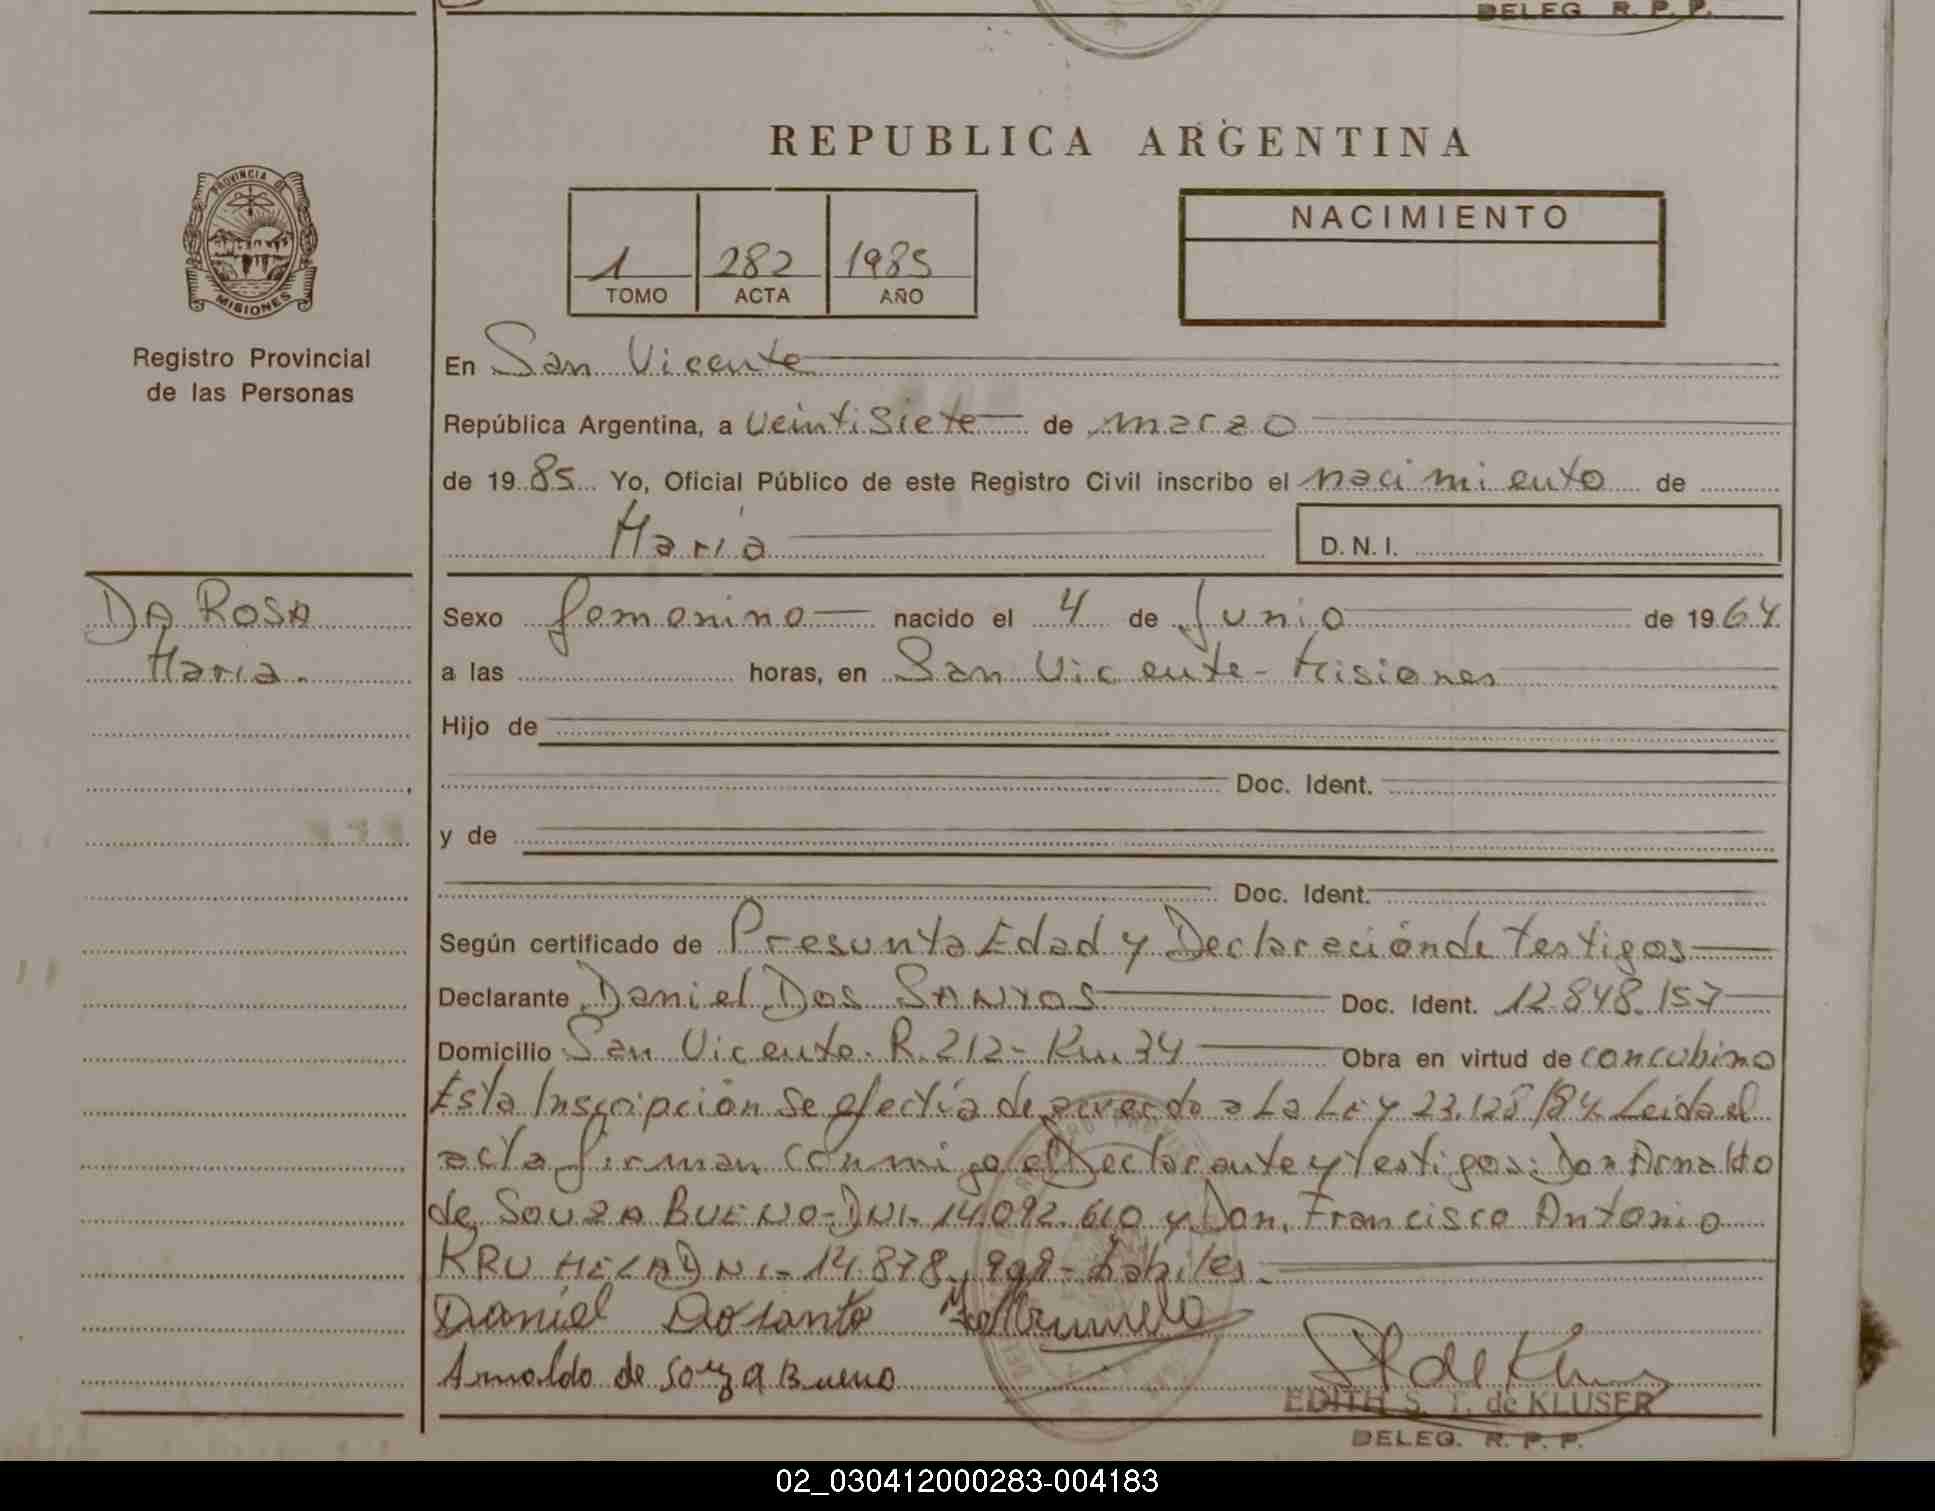 DELEG. R. P. P.
REPUBLICA ARGENTINA
PROVINCIA DE
MISIONES
Registro Provincial
de las Personas
1 282 1985
TOMO ACTA AÑO
NACIMIENTO
En San Vicente
República Argentina, a veintisiete de marzo
de 1985 Yo, Oficial Público de este Registro Civil inscribo el nacimiento de
María
D. N. I.
DA ROSA
María.
Sexo femenino nacido el 4 de Junio de 1964
a las horas, en San Vicente - Misiones
Hijo de
Doc. Ident.
y de
Doc. Ident.
Según certificado de Presunta Edad y Declaración de testigos
Declarante Daniel Dos SANTOS Doc. Ident. 12.848.157
Domicilio San Vicente. R. 212 - Km 34 Obra en virtud de concubino
Esta Inscripción se efectúa de acuerdo a La Ley 23.128/84. Leída el
acta firman conmigo el Declarante y testigos: Don Arnaldo
de SOUZA BUENO - DNI. 14.092.610 y Don. Francisco Antonio
KRUMELA DNI. - 14.878. - hábiles.
Daniel Dosanto
Arnoldo de Souza Bueno
EDITH S. T. de KLUSER
DELEG. R. P. P.
02_030412000283-004183